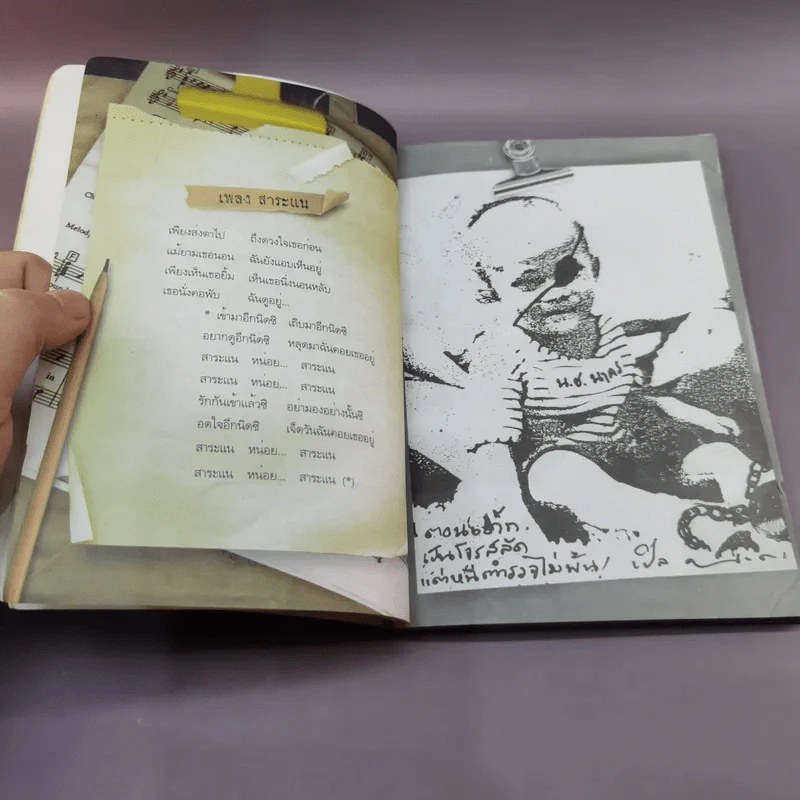 เพลง สาระแน
เพียงส่งตาไป ถึงดวงใจเธอก่อน
แม้ยามเธอนอน ฉันยังแอบเห็นอยู่
เพียงเห็นเธอยิ้ม เห็นเธอนิ่งนอนหลับ
เธอนั่งคอพับ ฉันดูอยู่...
* เข้ามาอีกนิดซิ เถิบมาอีกนิดซิ
อยากดูอีกนิดซิ หลุดมาฉันคอยเธออยู่
สาระแน หน่อย... สาระแน
สาระแน หน่อย... สาระแน
รักกันเข้าแล้วซิ อย่ามองอย่างนั้นซิ
อดใจอีกนิดซิ เจ็ดวันฉันคอยเธออยู่
สาระแน หน่อย... สาระแน
สาระแน หน่อย... สาระแน (*)
Melody
in
น.ช.
ตอนเด็ก
เป็นโจรสลัด
แต่หนีตำรวจไม่พ้น!